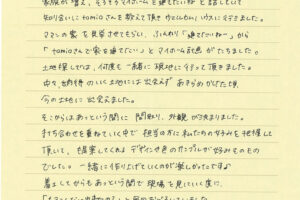 家族が増え、そろそろマイホームを建てたいね と話していて
知り合いに tomioさんを教えて頂き ハウスに行きました。
ママンの家 を 見学させてもらい、ふんわり 「建てたいねー」から
「tomioさんで家を建てたい」と マイホーム計画 がたちました。
土地探しでは、何度も 一緒に 現地に行って頂きました。
中々、納得のいく土地には出会えず あきらめかけた頃、
今の土地に 出会えました。
そこからはあっという間に 間取り、外観 が決まりました。
打ち合わせを重ねていく中で 担当の方に 私たちの好みを把握して
頂いて、提案してくれる デザインや色のサンプルが好みのもの
でした。一緒に作り上げていくのが楽しかったです♪
着工してからもあっという間で 現場を見ていく度に、